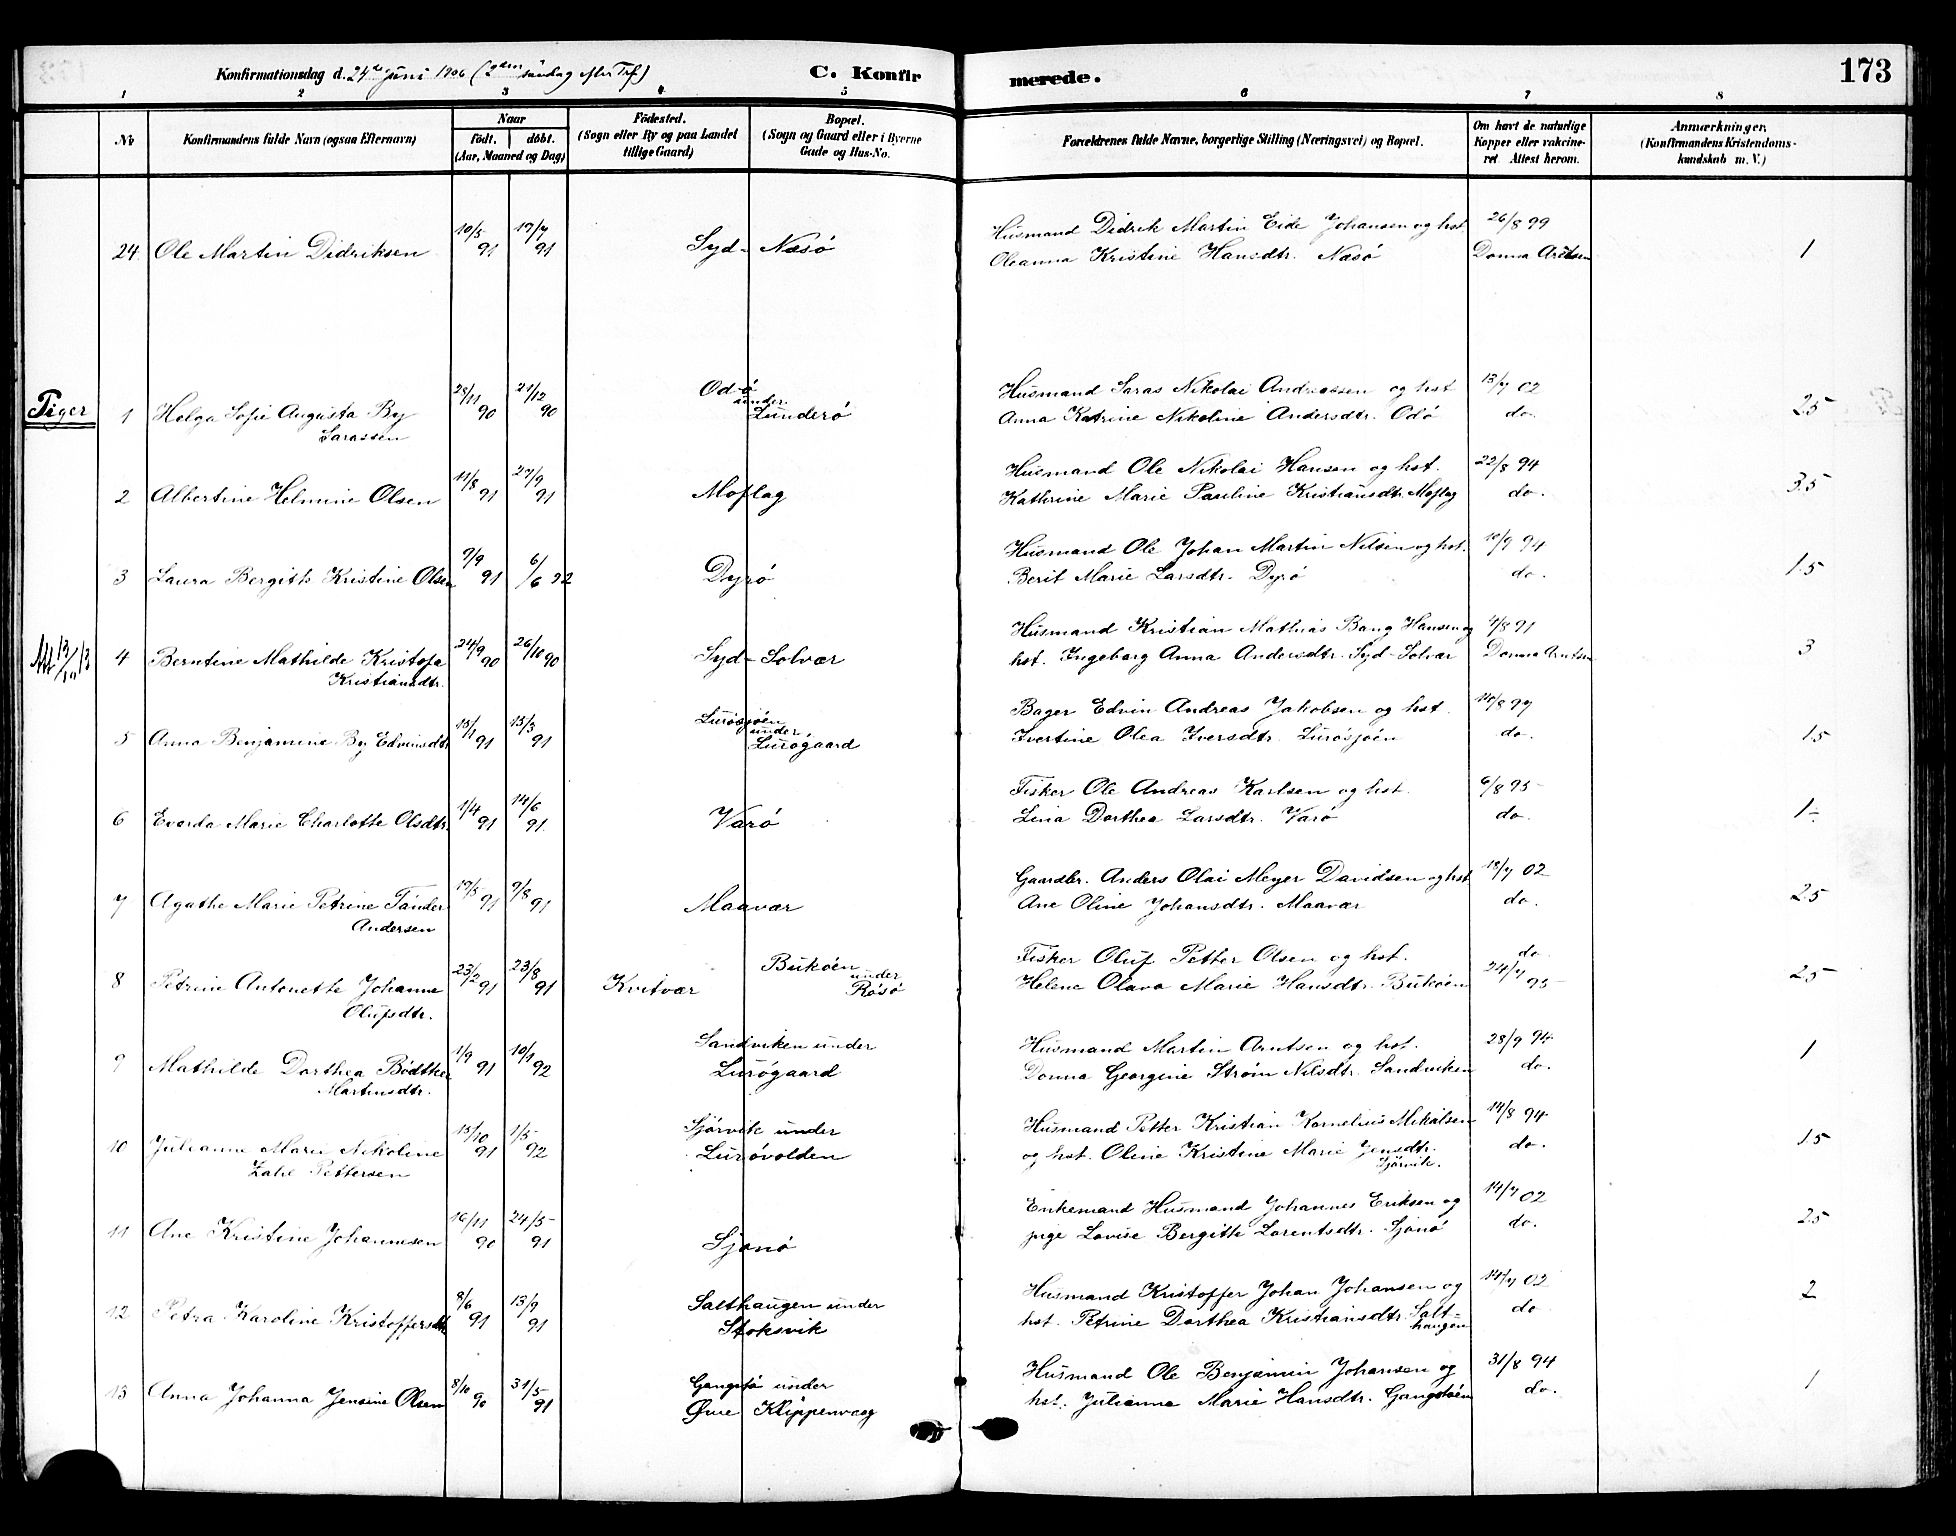 Konfirmationsdag d. 24de juni 1906 (2den söndag efter Tref)
C. Konfirmerede.
173
1 2 3 4 5 6 7 8
No
Konfirmandens fulde Navn (ogsaa Efternavn)
Naar
födt. döbt.
(Aar, Maaned og Dag)
Födested.
(Sogn eller By og paa Landet
tillige Gaard)
Bopæl.
(Sogn og Gaard eller i Byerne
Gade og Hus-No.
Forældrenes fulde Navne, borgerlige Stilling (Næringsvei) og Bopæl.
Om havt de naturlige
Kopper eller vakcine-
ret Attest herom.
Anmærkninger.
(Konfirmandens Kristendoms-
kundskab m. V.)
24. Ole Martin Didriksen 10/5 91 17/7 91 Syd-Næsö
Husmand Didrik Martin Eide Johansen og hst. 26/8 99
Oleanna Kristine Hansdtr. Næsö Donna Arntsen 1
Piger
1 Helga Sofie Augusta By 28/11 90 21/12 90 Odö under
Sarassen Lunderö
Husmand Saras Nikolai Andreassen og hst 13/7 02
Anna Katrine Nikoline Andersdtr. Odö do. 25
2 Albertine Helmine Olsen 11/8 91 27/9 91 Moflag
Husmand Ole Nikolai Hansen og hst. 22/8 94
Kathrine Marie Pauline Kristiansdtr. Moflag do. 3.5
3 Laura Bergith Kristine Olsen 7/9 91 6/6 92 Dyrö
Husmand Ole Johan Martin Nilsen og hst. 10/9 94
Berit Marie Larsdtr. Dyrö do. 1.5
Att 13/10 13
4 Berntine Mathilde Kristofa 24/9 90 26/10 90 Syd-Solvær
Kristiansdtr.
Husmand Kristian Mathias Bang Hansen og 4/8 91
hst. Ingeborg Anna Andersdtr. Syd-Solvær Donna Arntsen 3
5 Anna Benjamine By Edvinsdtr 15/1 91 15/3 91 Lurösjöen under
Lurögaard
Bager Edvin Andreas Jakobsen og hst. 14/8 99
Ivertine Olea Iversdtr. Lurösjöen do. 15
6 Everda Marie Charlotte Olsdtr. 1/4 91 14/6 91 Varö
Fisker Ole Andreas Karlsen og hst. 6/8 95
Lina Dorthea Larsdtr. Varö do. 1-
7 Agathe Marie Petrine Tander 17/5 91 9/8 91 Maavær
Andersen
Gaardbr. Anders Olai Meyer Davidsen og hst 18/7 02
Ane Oline Johansdtr. Maavær do. 2.5
8 Petrine Antonette Johanna 23/2 91 23/8 91 Kvitvær Buköen under
Olufsdtr. Rösö
Fisker Oluf Petter Olsen og hst. do.
Helene Olava Marie Hansdtr. Buköen 24/7 95 25
9 Mathilde Dorthea Bödtker 1/9 91 10/1 92 Sandviken under
Martinsdtr. Lurögaard
Husmand Martin Arntsen og hst. 28/9 94
Donna Georgine Ström Nilsdtr. Sandviken do. 1
10 Julianne Marie Nikoline 15/10 91 1/5 92 Sjörvik under
Zahl Pettersen Luróvolden
Husmand Petter Kristian Kornelius Mikalsen 14/8 94
og hst. Oline Kristine Marie Jensdtr. Sjörvik. do. 15
11 Ane Kristine Johannesen 16/11 90 24/5 91 Sjonö
Enkemand Husmand Johannes Eriksen og 14/7 02
pige Lovise Bergitte Lorentsdtr. Sjonö do. 25
12 Petra Karoline Kristoffersdtr 8/6 91 13/9 91 Salthaugen under
Stoksvik
Husmand Kristoffer Johan Johansen og 14/7 02
hst. Petrine Dorthea Kristiansdtr. Salthaugen do 2
13 Anna Johanna Jensine Olsen 8/10 90 31/5 91 Gangstö under
Övre Klippenvaag
Husmand Ole Benjamin Johansen og 31/8 94
hst. Julianna Marie Hansdtr. Gangstöen do. 1